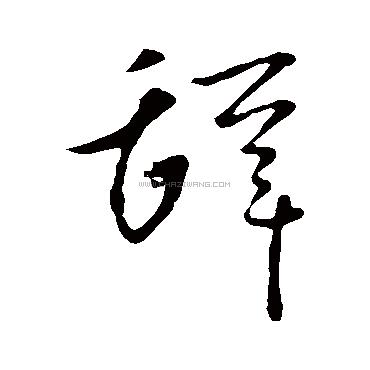 辞
WWW.CHAZIWANG.COM